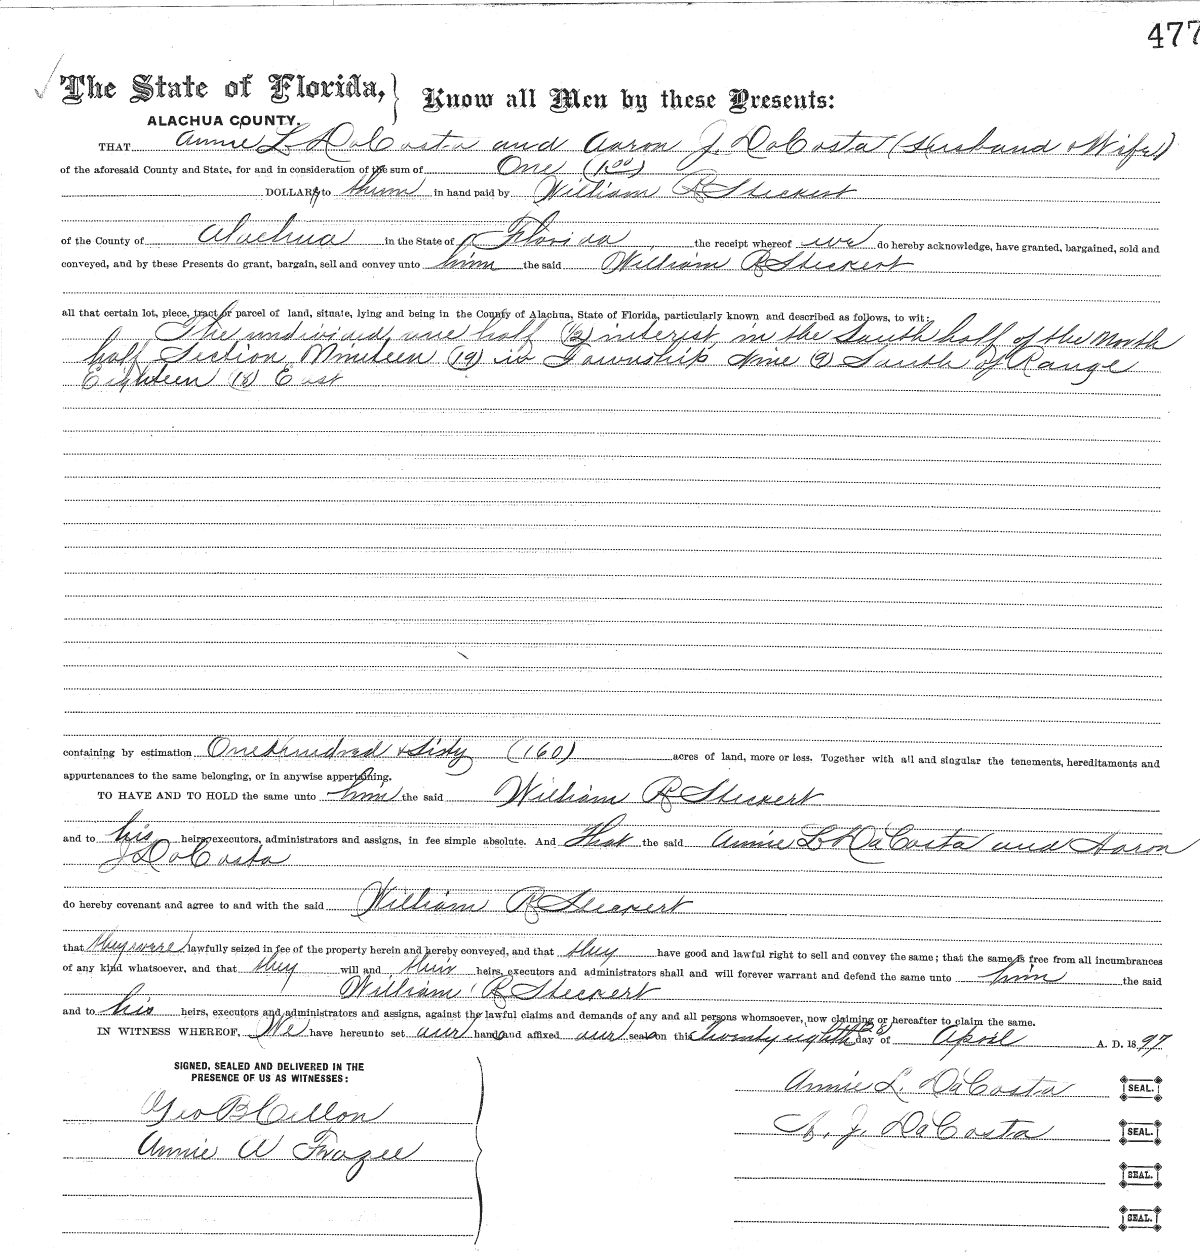 477
The State of Florida,
ALACHUA COUNTY.
Know all Men by these Presents:
THAT Annie L. DaCosta and Aaron J. DaCosta (Husband & Wife)
of the aforesaid County and State, for and in consideration of the sum of One (1.00)
DOLLARS, to them in hand paid by William R Steckert
of the County of Alachua in the State of Florida the receipt whereof we do hereby acknowledge, have granted, bargained, sold and
conveyed, and by these Presents do grant, bargain, sell and convey unto him the said William R Steckert
all that certain lot, piece, tract or parcel of land, situate, lying and being in the County of Alachua, State of Florida, particularly known and described as follows, to wit:
The undivided one half (1/2) interest, in the South half of the North
half Section Nineteen (19) in Township Nine (9) South of Range
Eighteen (18) East
containing by estimation One Hundred & Sixty (160) acres of land, more or less. Together with all and singular the tenements, hereditaments and
appurtenances to the same belonging, or in anywise appertaining.
TO HAVE AND TO HOLD the same unto him the said William R Steckert
and to his heirs, executors, administrators and assigns, in fee simple absolute. And That the said Annie L DaCosta and Aaron
J DaCosta
do hereby covenant and agree to and with the said William R Steckert
that they were lawfully seized in fee of the property herein and hereby conveyed, and that they have good and lawful right to sell and convey the same; that the same is free from all incumbrances
of any kind whatsoever, and that they will and their heirs, executors and administrators shall and will forever warrant and defend the same unto him the said
William R Steckert
and to his heirs, executors and administrators and assigns, against the lawful claims and demands of any and all persons whomsoever, now claiming or hereafter to claim the same.
IN WITNESS WHEREOF, We have hereunto set our hand and affixed our seal on this Twenty eighth 28 day of April A. D. 1897
SIGNED, SEALED AND DELIVERED IN THE
PRESENCE OF US AS WITNESSES:
Geo B Cellon
Annie W Frazee
Annie L. DaCosta SEAL.
A. J. DaCosta SEAL.
SEAL.
SEAL.